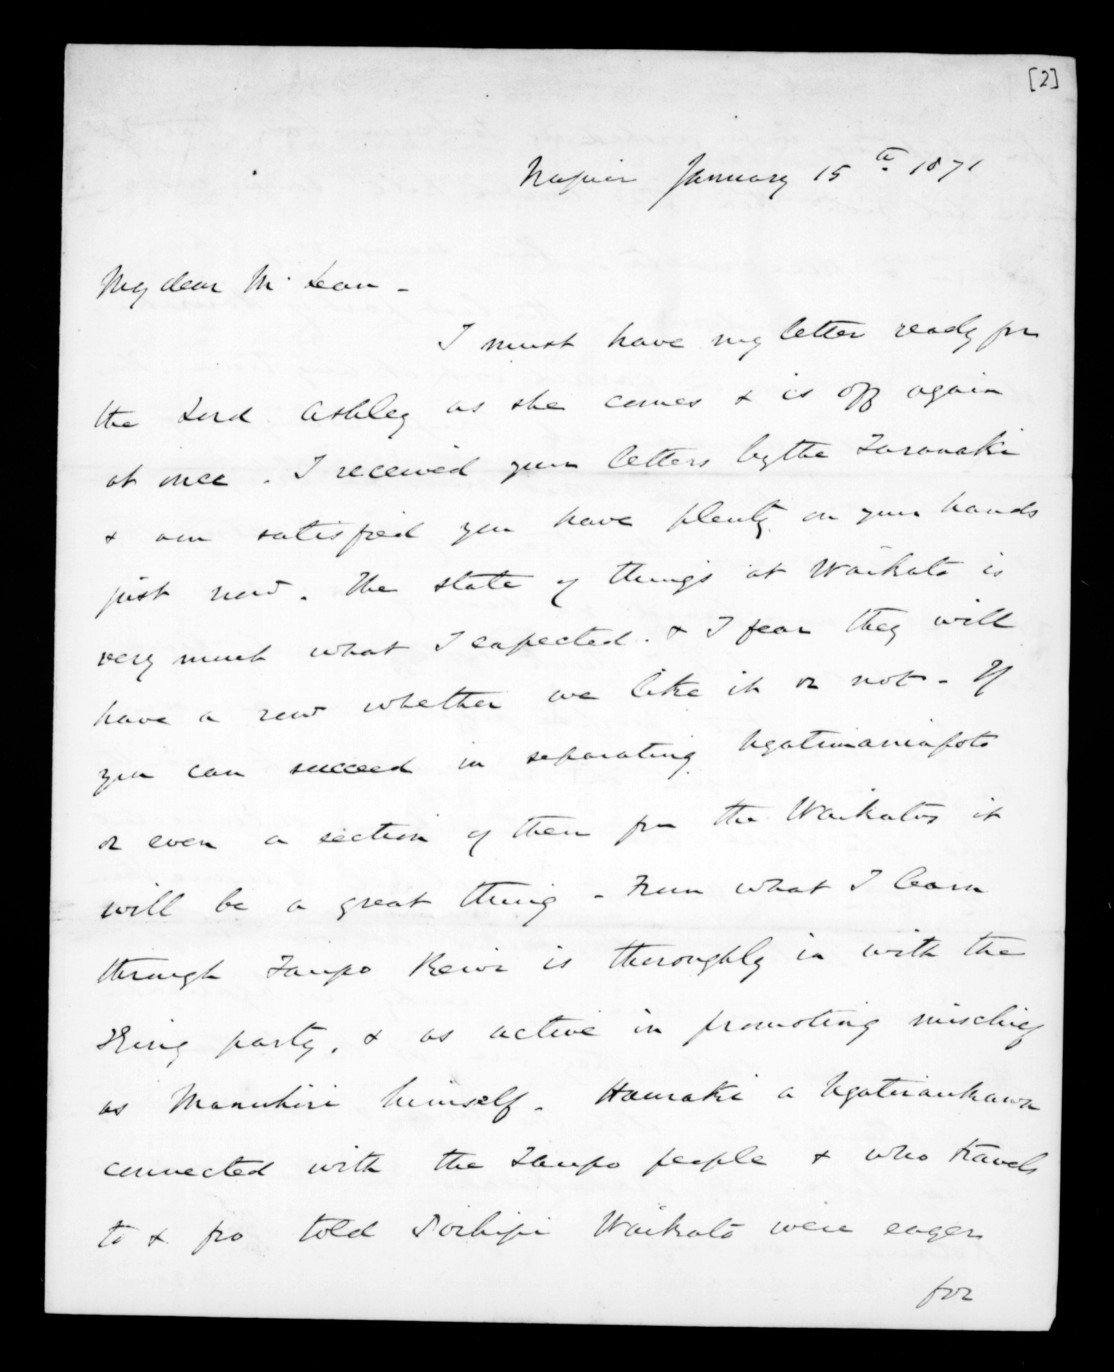 [2]
Napier January 15th. 1871
My dear McLean -
I must have my letter ready for
the Lord Ashley as she comes & is off again
at once. I received your letters by the Taranaki
& am satisfied you have plenty on your hands
just now. The state of things at Waikato is
very much what I expected. & I fear they will
have a row whether we like it or not - If
you can succeed in separating Ngatimaniapoto
or even a section of them from the Waikatos it
will be a great thing - From what I learn
through Taupo Rewi is thoroughly in with the
King party, & as active in promoting mischief
as Manuhiri himself. Hauraki a Ngatiraukawa
connected with the Taupo people & who travels
to & fro told Poihipi Waikato were eager
for